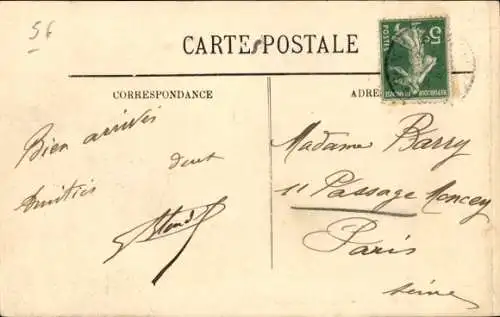 56
CARTE POSTALE
5c
POSTES
REPUBLIQUE FRANÇAISE
CORRESPONDANCE
Bien arrivés
Amitiés
ADRE
Madame Barry
11 Passage Moncey
Paris
Seine